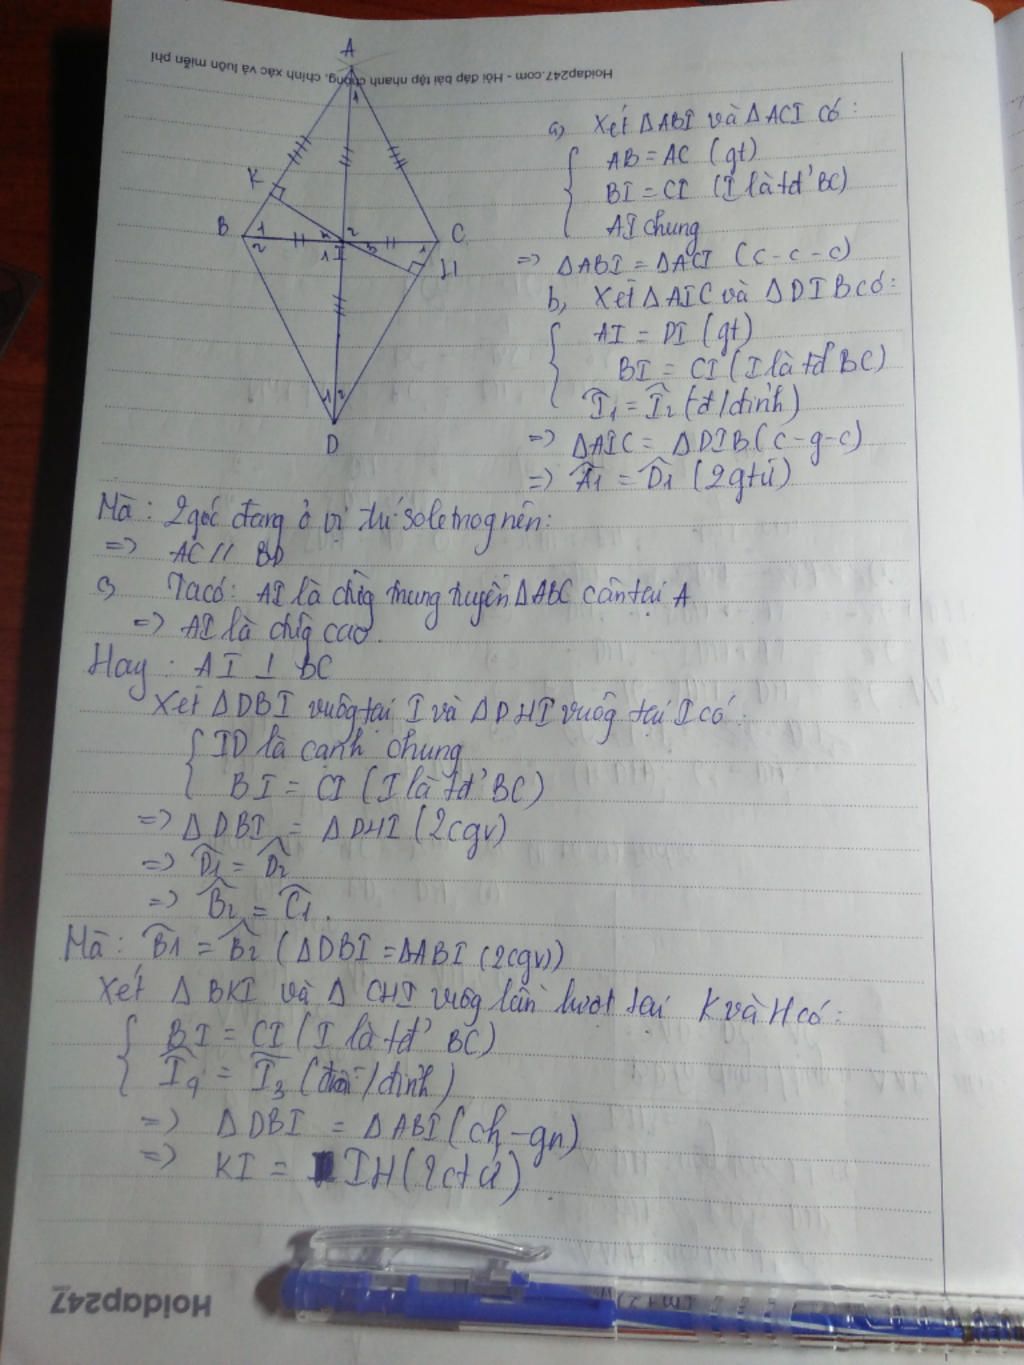 Holdap247.com - Hỏi đáp bài tập nhanh chóng, chính xác và luôn miễn phí
A
1
K
B
1
2
4
2
3
1 I
C
1
H
1 2
D
a, Xét ΔABI và ΔACI có:
AB = AC (gt)
BI = CI (I là tđ' BC)
AI chung
=> ΔABI = ΔACI (c-c-c)
b, Xét ΔAIC và ΔDIB có:
AI = DI (gt)
BI = CI (I là tđ BC)
Î1 = Î2 (đ/đỉnh)
=> ΔAIC = ΔDIB (c-g-c)
=> Â1 = D̂1 (2gtứ)
Mà: 2 góc đang ở vị trí so le trog nên:
=> AC // BD
c, Ta có: AI là đườg trung tuyến ΔABC cân tại A
=> AI là đườg cao.
Hay: AI ⊥ BC
Xét ΔDBI vuôg tại I và ΔDHI vuôg tại I có:
ID là cạnh chung
BI = CI (I là tđ' BC)
=> ΔDBI = ΔDHI (2cgv)
=> D̂1 = D̂2
=> B̂2 = Ĉ1.
Mà: B̂1 = B̂2 (ΔDBI = ΔABI (2cgv))
Xét ΔBKI và ΔCHI vuôg lần lượt tại K và H có:
BI = CI (I là tđ' BC)
Î4 = Î3 (đối/đỉnh)
=> ΔDBI = ΔABI (ch-gn)
=> KI = IH (2ctứ)
Holdap247